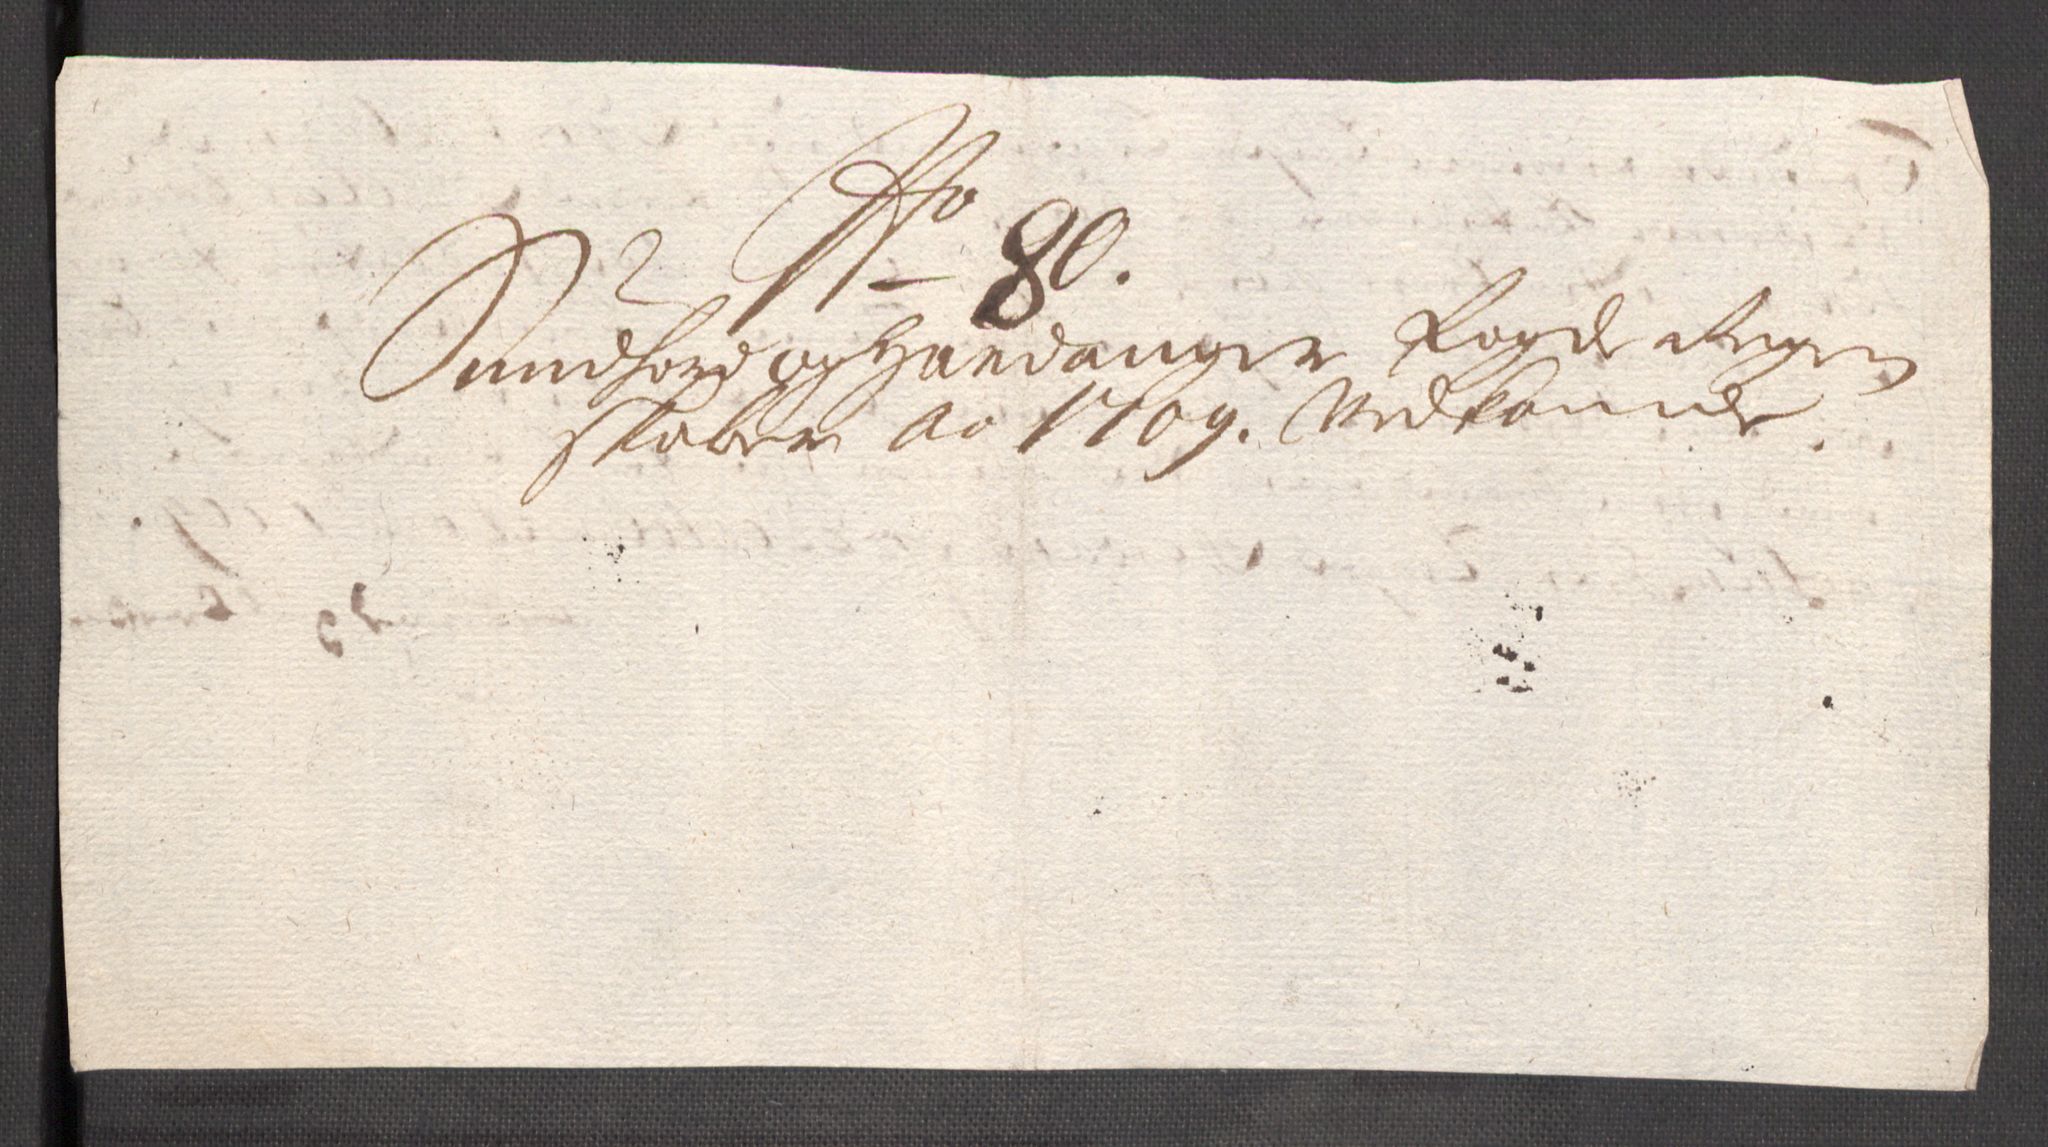 No 80.
Sundhord og Hardanger Fogde Regen
skaber Ao 1709. Vedkomende.